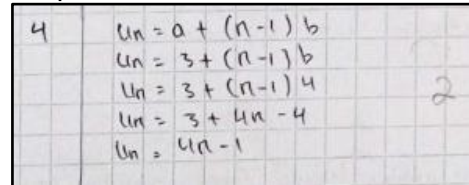 4 Un = a + (n-1) b
Un = 3 + (n-1) b
Un = 3 + (n-1) 4
Un = 3 + 4n - 4
Un = 4n - 1
2